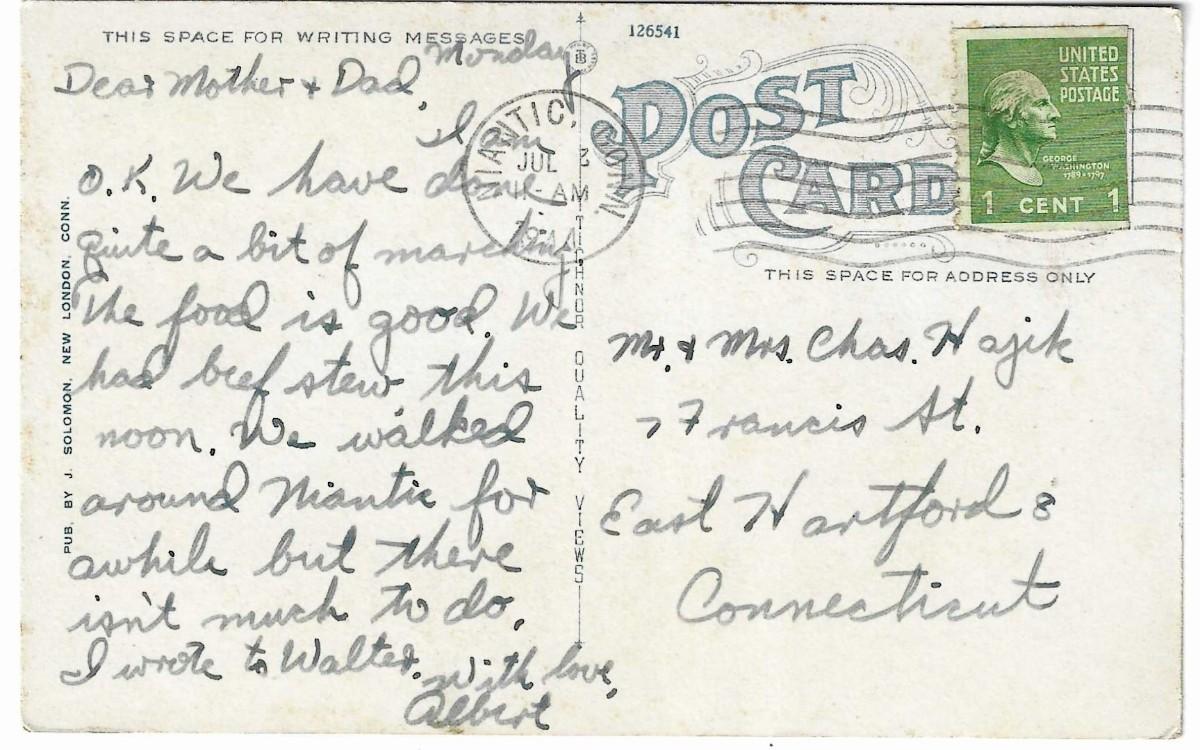 THIS SPACE FOR WRITING MESSAGES
Monday
Dear Mother + Dad,
I am
O.K. We have done
quite a bit of marching.
The food is good. We
had beef stew this
noon. We walked
around Niantic for
awhile but there
isn't much to do.
I wrote to Walter.
With love,
Albert
PUB. BY J. SOLOMON, NEW LONDON, CONN.
TICHNOR QUALITY VIEWS
126541
NIANTIC, CONN.
JUL
AM
POST CARD
UNITED
STATES
POSTAGE
GEORGE
WASHINGTON
1789-1797
1 CENT 1
THIS SPACE FOR ADDRESS ONLY
Mr. & Mrs. Chas. Hajik
7 Francis St.
East Hartford 8
Connecticut